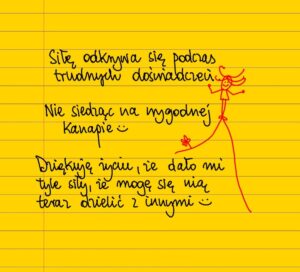 Siłę odkrywa się podczas
trudnych doświadczeń.
Nie siedząc na wygodnej
kanapie ☺
Dziękuję życiu, że dało mi
tyle siły, że mogę się nią
teraz dzielić z innymi ☺